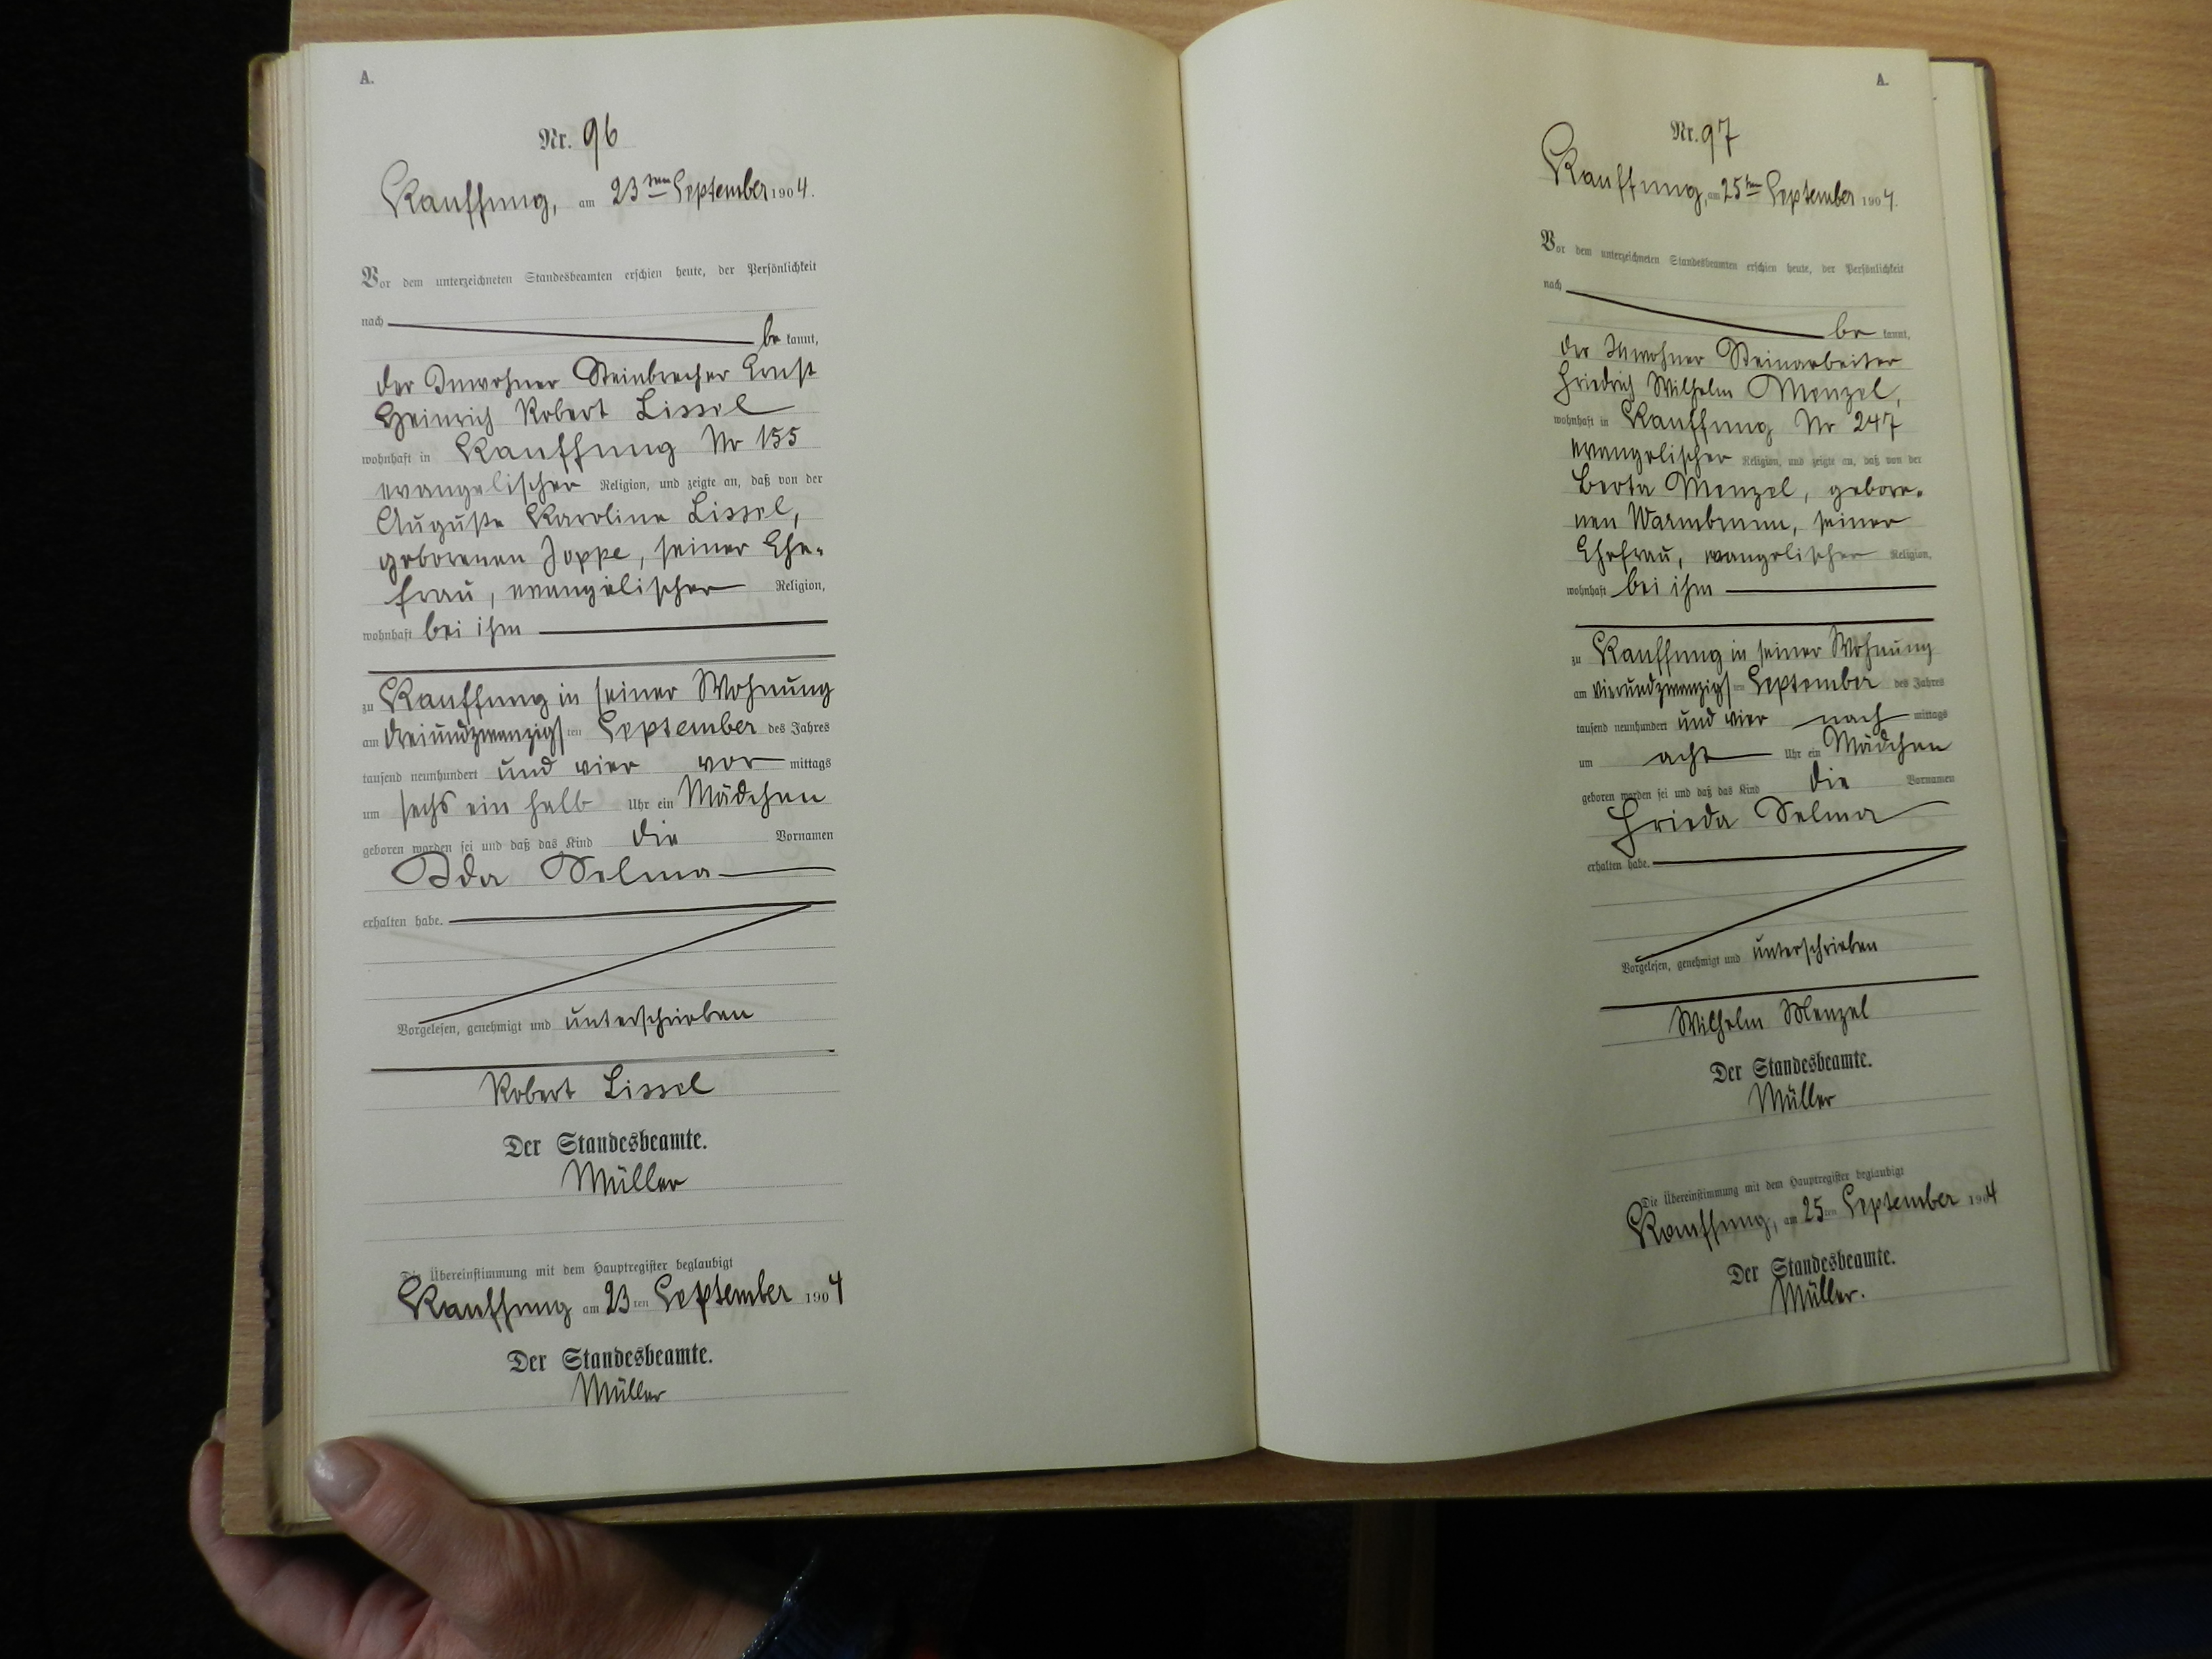 A.
Nr. 96
Kauffung, am 23ten September 1904.
Vor dem unterzeichneten Standesbeamten erschien heute, der Persönlichkeit
nach be kannt,
der Inwohner Steinbrecher Ernst
Heinrich Robert Lissel
wohnhaft in Kauffung Nr 155
evangelischer Religion, und zeigte an, daß von der
Auguste Karoline Lissel,
geborenen Joppe, seiner Ehe-
frau, evangelischer Religion,
wohnhaft bei ihm
zu Kauffung in seiner Wohnung
am dreiundzwanzigsten September des Jahres
tausend neunhundert und vier vor mittags
um sechs ein halb Uhr ein Mädchen
geboren worden sei und daß das Kind die Vornamen
Ida Selma
erhalten habe.
Vorgelesen, genehmigt und unterschrieben
Robert Lissel
Der Standesbeamte.
Müller
Die Übereinstimmung mit dem Hauptregister beglaubigt
Kauffung am 23ten September 1904
Der Standesbeamte.
Müller
A.
Nr. 97
Kauffung, am 25ten September 1904.
Vor dem unterzeichneten Standesbeamten erschien heute, der Persönlichkeit
nach be kannt,
der Inwohner Steinarbeiter
Friedrich Wilhelm Menzel,
wohnhaft in Kauffung Nr 247
evangelischer Religion, und zeigte an, daß von der
Berta Menzel, gebore-
nen Warmbrunn, seiner
Ehefrau, evangelischer Religion,
wohnhaft bei ihm
zu Kauffung in seiner Wohnung
am vierundzwanzigsten September des Jahres
tausend neunhundert und vier nach mittags
um acht Uhr ein Mädchen
geboren worden sei und daß das Kind die Vornamen
Frieda Selma
erhalten habe.
Vorgelesen, genehmigt und unterschrieben
Wilhelm Menzel
Der Standesbeamte.
Müller
Die Übereinstimmung mit dem Hauptregister beglaubigt
Kauffung, am 25ten September 1904
Der Standesbeamte.
Müller.